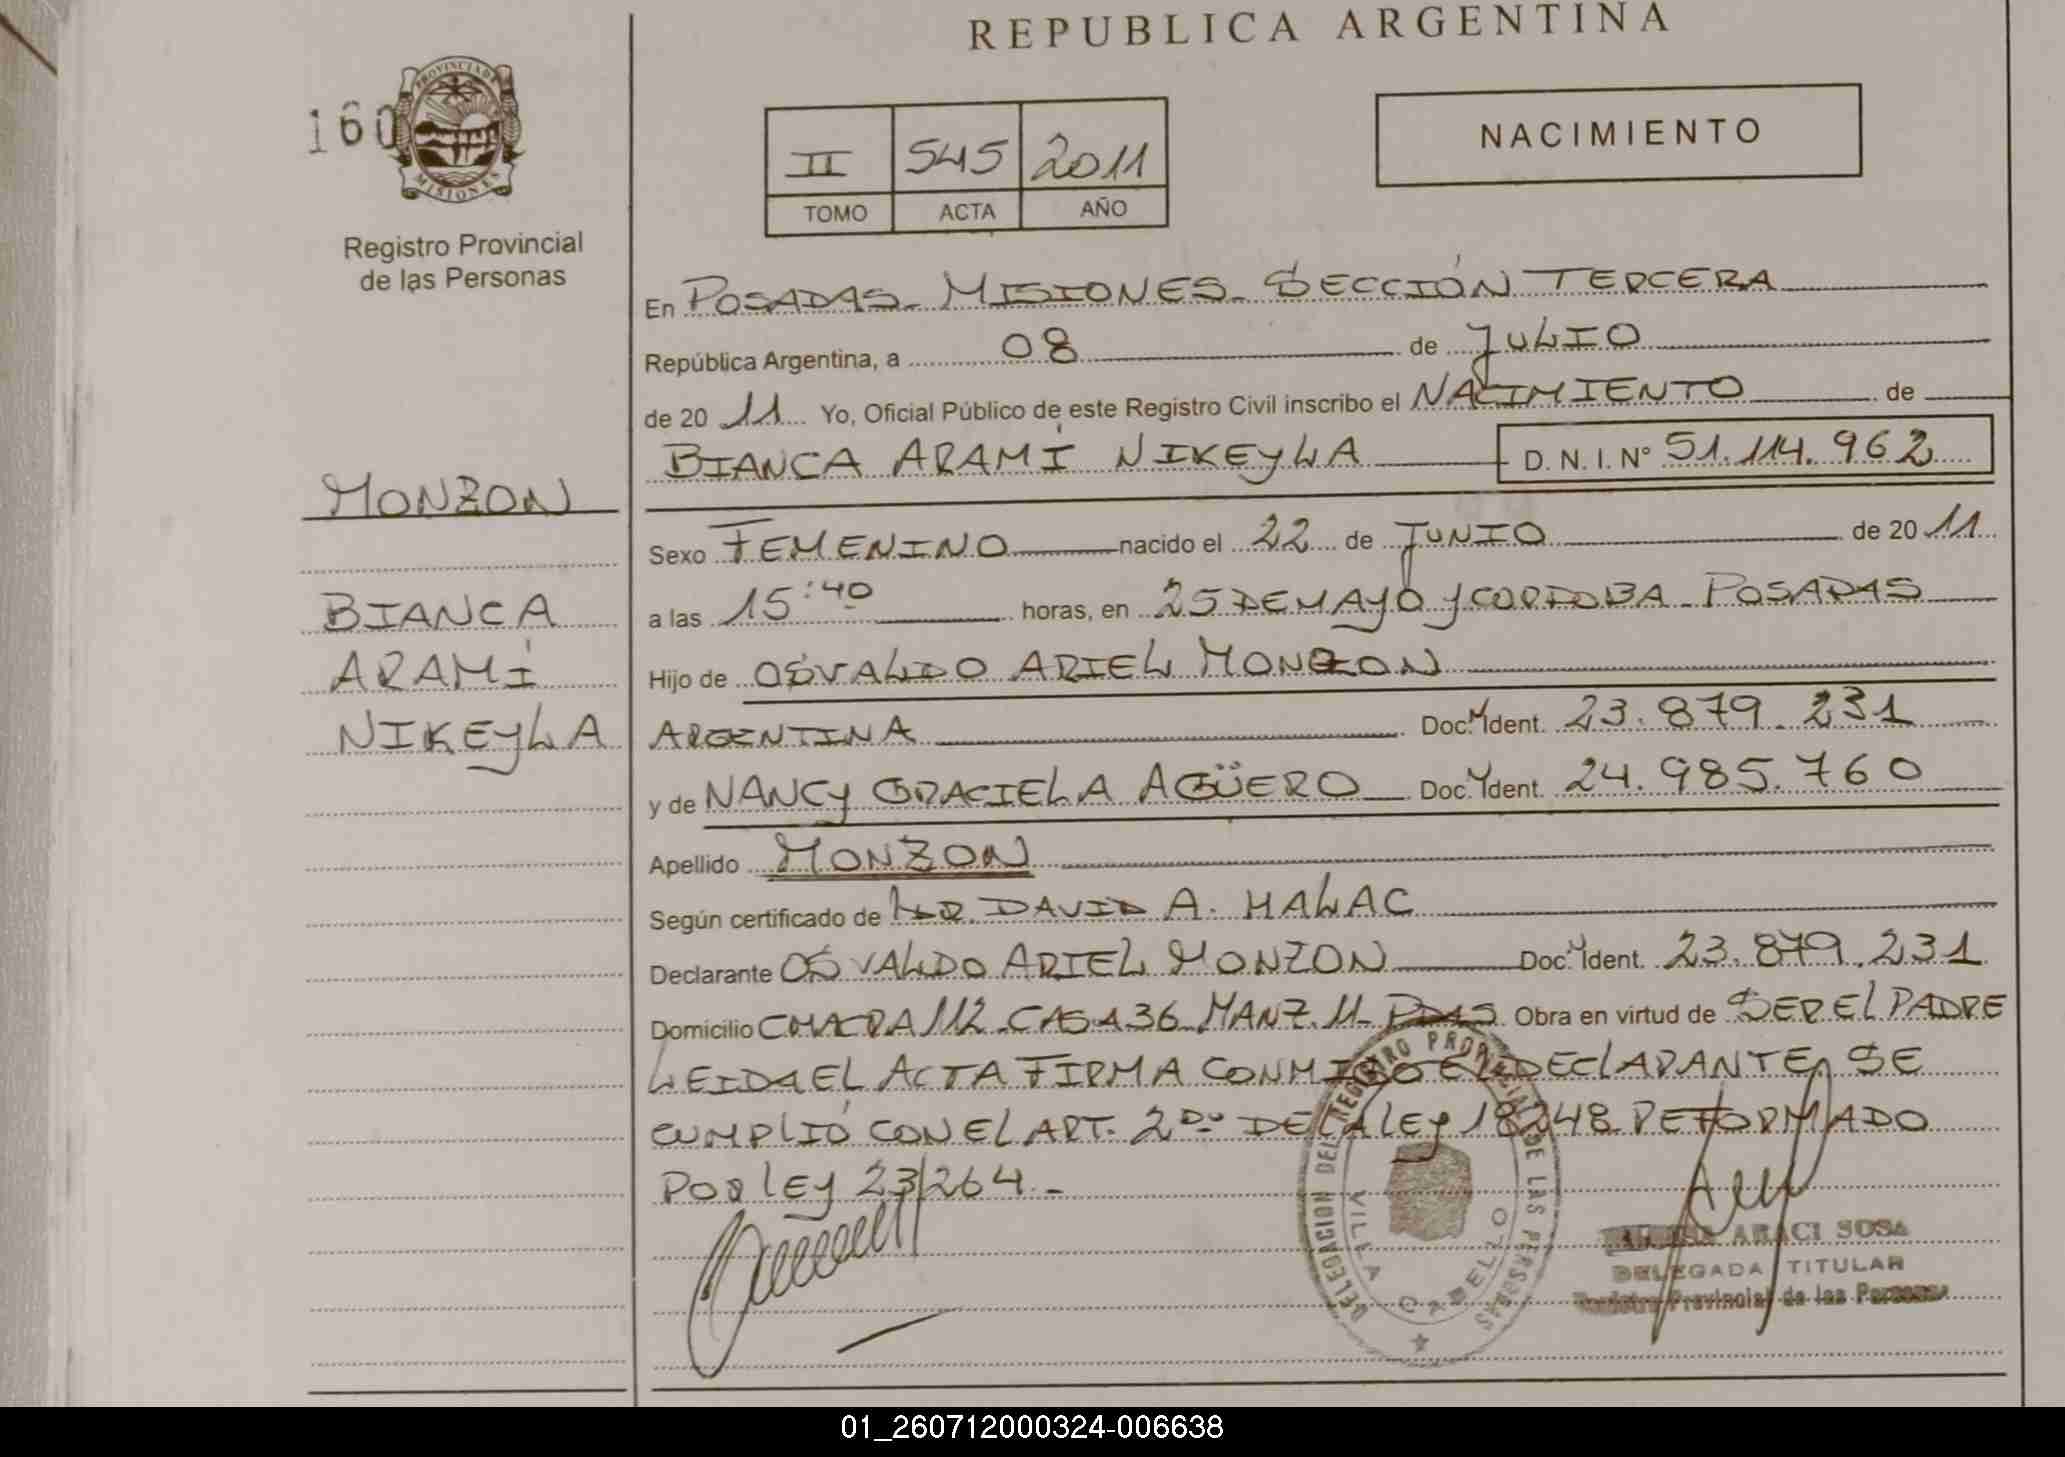 REPUBLICA ARGENTINA
160
PROVINCIA DE
MISIONES
Registro Provincial
de las Personas
II 545 2011
TOMO ACTA AÑO
NACIMIENTO
En POSADAS - MISIONES - SECCIÓN TERCERA
República Argentina, a 08 de JULIO
de 20 11 Yo, Oficial Público de este Registro Civil inscribo el NACIMIENTO de
BIANCA ARAMÍ NIKEYLA D. N. I. N° 51.114.962
MONZON
BIANCA
ARAMÍ
NIKEYLA
Sexo FEMENINO nacido el 22 de JUNIO de 20 11
a las 15:40 horas, en 25 DE MAYO y CORDOBA - POSADAS
Hijo de OSVALDO ARIEL MONZON
ARGENTINA Doc. Ident. 23.879.231
y de NANCY GRACIELA AGÜERO Doc. Ident. 24.985.760
Apellido MONZON
Según certificado de DAVID A. HALAC
Declarante OSVALDO ARIEL MONZON Doc. Ident. 23.879.231
Domicilio CHACRA 112 - CASA 36 - MANZ. 11 - PDAS Obra en virtud de SER EL PADRE
LEIDA EL ACTA FIRMA CONMIGO EL DECLARANTE, SE
CUMPLIÓ CON EL ART. 2DO DE LA LEY 18248 REFORMADO
POR LEY 23/264 -
DELEGACION DEL REGISTRO PROVINCIAL DE LAS PERSONAS
VILLA CABELLO
ARACI SOSA
DELEGADA TITULAR
Registro Provincial de las Personas
01_260712000324-006638